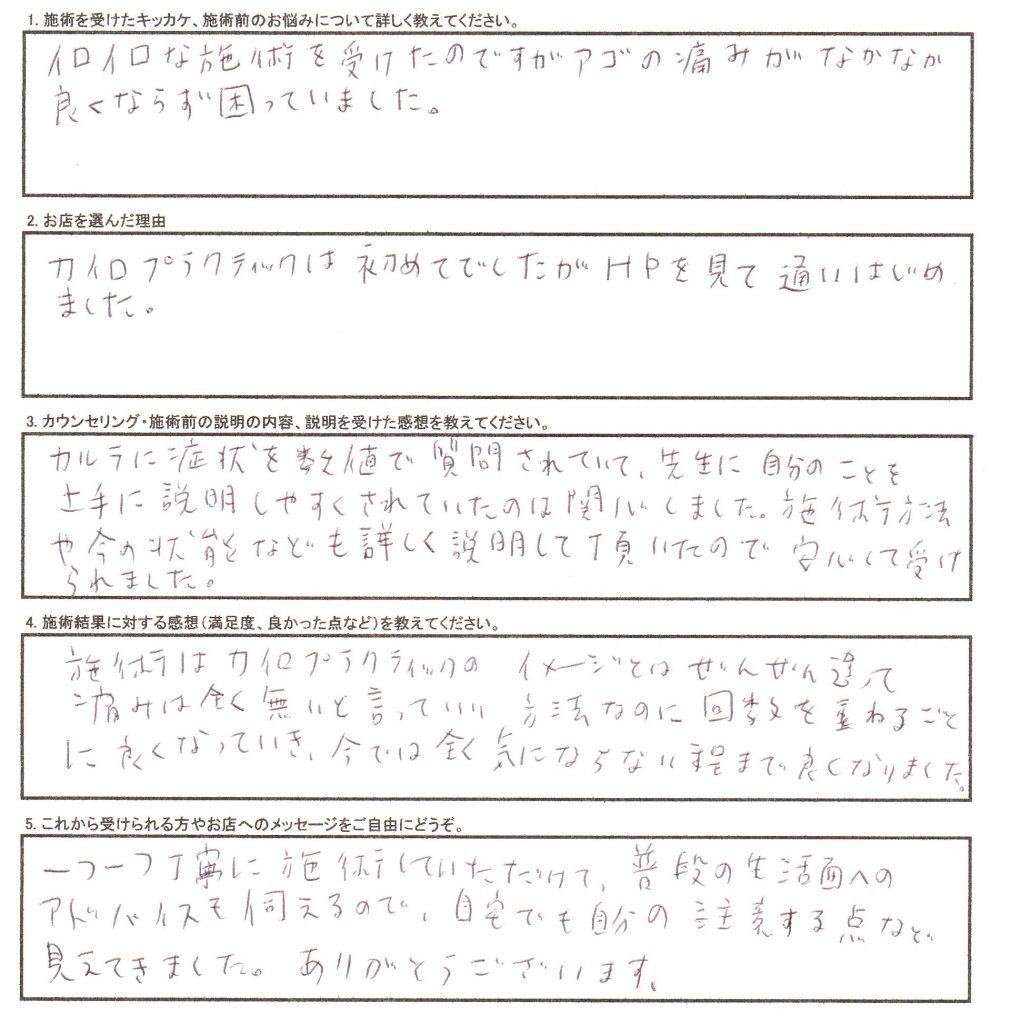 1. 施術を受けたキッカケ、施術前のお悩みについて詳しく教えてください。
イロイロな施術を受けたのですがアゴの痛みがなかなか
良くならず困っていました。
2. お店を選んだ理由
カイロプラクティックは初めてでしたがHPを見て通いはじめ
ました。
3. カウンセリング・施術前の説明の内容、説明を受けた感想を教えてください。
カルテに症状を数値で質問されていて、先生に自分のことを
上手に説明しやすくされていたのは関心しました。施術方法
や今の状態なども詳しく説明して頂いたので安心して受け
られました。
4. 施術結果に対する感想（満足度、良かった点など）を教えてください。
施術はカイロプラクティックのイメージとはぜんぜん違って
痛みは全く無いと言っていい方法なのに回数を重ねるごと
に良くなっていき、今では全く気にならない程まで良くなりました。
5. これから受けられる方やお店へのメッセージをご自由にどうぞ。
一つ一つ丁寧に施術していただけて、普段の生活面への
アドバイスも伺えるので、自宅でも自分の注意する点など
見えてきました。ありがとうございます。